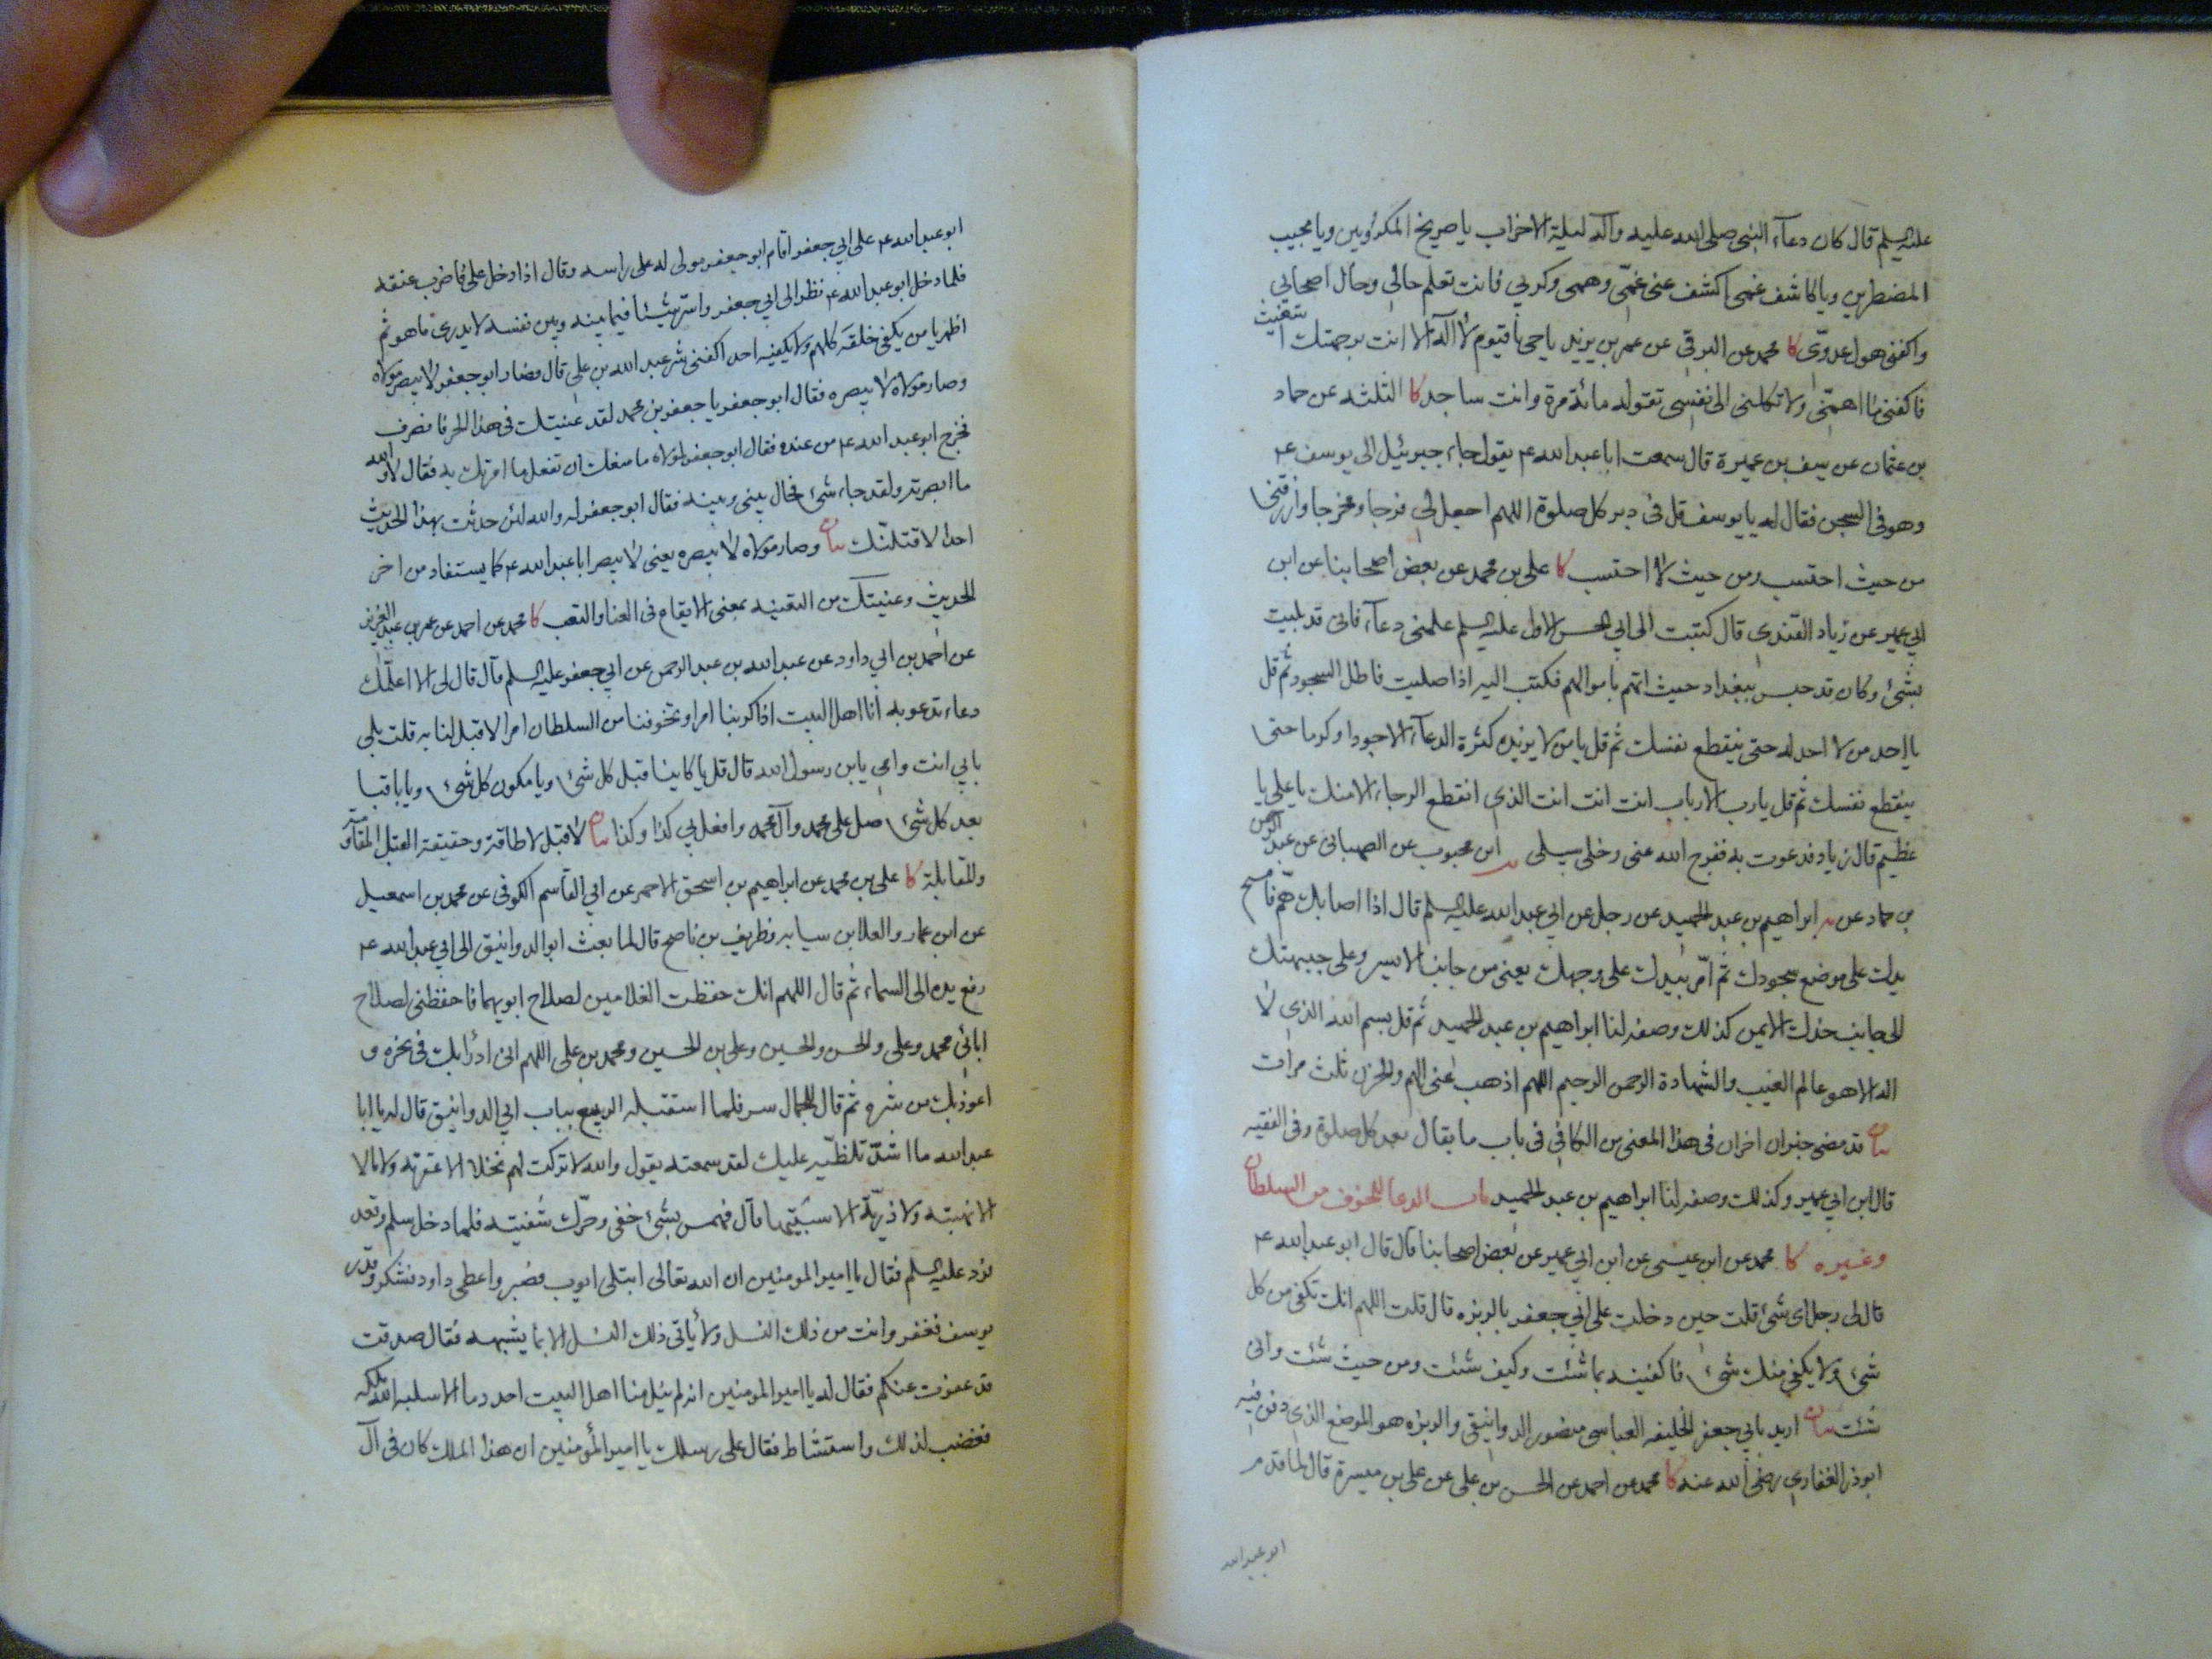 عليه السلم قال كان دعآء النبى صلى الله عليه وآله ليلة الاحزاب يا صريخ المكروبين ويا مجيب
المضطرين ويا كاشف غمى اكشف عنى غمى وهمى وكربى فانت تعلم حالى وحال اصحابى
واكفنى هول عدوى كا محمد عن البرقى عن عمر بن يزيد يا حى يا قيوم لا اله الا انت برحمتك استغيث
فاكفنى ما اهمنى ولا تكلنى الى نفسى تقوله مائة مرة وانت ساجد كا الثلثه عن حماد
بن عثمان عن سيف بن عميرة قال سمعت ابا عبد الله ع يقول جاء جبرئيل الى يوسف ع
وهو فى السجن فقال له يا يوسف قل فى دبر كل صلوة اللهم اجعل لى فرجا ومخرجا وارزقنى
من حيث احتسب ومن حيث لا احتسب كا على بن محمد عن بعض اصحابنا عن ابن
ابى عمير عن زياد القندى قال كتبت الى ابى الحسن الاول عليه السلم علمنى دعآء فانى قد بليت
بشئ وكان قد حبس ببغداد حيث اتهم باموالهم فكتب اليه اذا صليت فاطل السجود ثم قل
يا احد من لا احد له حتى ينقطع نفسك ثم قل يا من لا يزيده كثرة الدعآء الا جودا وكرما حتى
ينقطع نفسك ثم قل يا رب الارباب انت انت انت الذى انقطع الرجاء الا منك يا على يا
عظيم قال زياد فدعوت به ففرج الله عنى وخلى سبيلى يه ابن محبوب عن الصهبانى عن عبد الرحمن
بن حماد عن ابراهيم بن عبد الحميد عن رجل عن ابى عبد الله عليه السلم قال اذا اصابك هم فامسح
يدك على موضع سجودك ثم امر بيدك على وجهك يعنى من جانب الايسر وعلى جبهتك
الى جانب خدك الايمن كذلك وصفه لنا ابراهيم بن عبد الحميد ثم قل بسم الله الذى لا
اله الا هو عالم الغيب والشهادة الرحمن الرحيم اللهم اذهب عنى الهم والحزن ثلث مرات
بيان قد مضى خبران اخران فى هذا المعنى من الكافى فى باب ما يقال بعد كل صلوة وفى الفقيه
قال ابن ابى عمير وكذلك وصفه لنا ابراهيم بن عبد الحميد باب الدعا للخوف من السلطان
وغيره كا محمد عن ابن عيسى عن ابن ابى عمير عن بعض اصحابنا قال قال ابو عبد الله ع
قال لى رجل اى شئ قلت حين دخلت على ابى جعفر بالربذه قال قلت اللهم انك تكفى من كل
شئ ولا يكفى منك شئ فاكفنيه بما شئت وكيف شئت ومن حيث شئت وانى
شئت بيان اريد بابى جعفر الخليفه العباسى منصور الدوانيقى والربذه هو الموضع الذى دفن فيه
ابوذر الغفارى رضى الله عنه كا محمد عن احمد عن الحسن بن على عن على بن ميسرة قال لما قدم
ابو عبد الله
ابو عبد الله ع على ابى جعفر اقام ابو جعفر مولى له على راسه وقال اذا دخل على فاضرب عنقه
فلما دخل ابو عبد الله ع نظر الى ابى جعفر واسر شيئا فيما بينه وبين نفسه لا يدرى ما هو ثم
اظهر يا من يكفى خلقه كلهم ولا يكفيه احد اكفنى شر عبد الله بن على قال فصار ابو جعفر لا يبصر مولاه
وصار مولاه لا يبصره فقال ابو جعفر يا جعفر بن محمد لقد عنيتك فى هذا الحر فانصرف
فخرج ابو عبد الله ع من عنده فقال ابو جعفر لمولاه ما منعك ان تفعل ما امرتك به فقال لا والله
ما ابصرته ولقد جاء شئ فحال بينى وبينه فقال ابو جعفر له والله لئن حدثت بهذا الحديث
احدا لاقتلنك بيان وصار مولاه لا يبصره يعنى لا يبصر ابا عبد الله ع كما يستفاد من اخر
الحديث وعنيتك من التعنيه بمعنى الايقاع فى العنا والتعب كا محمد عن احمد عن عمر بن عبد العزيز
عن احمد بن ابى داود عن عبد الله بن عبد الرحمن عن ابى جعفر عليه السلم قال قال لى الا اعلمك
دعاء تدعو به انا اهل البيت اذا كربنا امر او تخوفنا من السلطان امرا لا قبل لنا به قلت بلى
بابى انت وامى يا بن رسول الله قال قل يا كاينا قبل كل شئ ويا مكون كل شئ ويا باقيا
بعد كل شئ صل على محمد وآل محمد وافعل بى كذا وكذا بيان لا قبل لا طاقة وحقيقة القبل المقاومة
والمقابلة كا على بن محمد عن ابراهيم بن اسحق الاحمر عن ابى القاسم الكوفى عن محمد بن اسمعيل
عن ابن عمار والعلا بن سيابه وظريف بن ناصح قال لما بعث ابو الدوانيق الى ابى عبد الله ع
رفع يده الى السماء ثم قال اللهم انك حفظت الغلامين لصلاح ابويهما فاحفظنى لصلاح
ابائى محمد وعلى والحسن والحسين وعلى بن الحسين ومحمد بن على اللهم انى ادرا بك فى نحره و
اعوذ بك من شره ثم قال للجمال سر فلما استقبله الربيع بباب ابى الدوانيق قال له يا ابا
عبد الله ما اشد تلظيه عليك لقد سمعته يقول والله لا تركت لهم نخلا الا عقرته ولا مالا
الا نهبته ولا ذرية الا سبيتها قال فهمس بشئ خفى وحرك شفتيه فلما دخل سلم وقعد
فرد عليه السلم فقال يا امير المومنين ان الله تعالى ابتلى ايوب فصبر واعطى داود فشكر وقدر
يوسف فغفر وانت من ذلك النسل ولا ياتى ذلك النسل الا بما يشبهه فقال صدقت
قد عفوت عنكم فقال له يا امير المومنين انه لم ينل منا اهل البيت احد دما الا سلبه الله ملكه
فغضب لذلك واستشاط فقال على رسلك يا امير المؤمنين ان هذا الملك كان فى آل